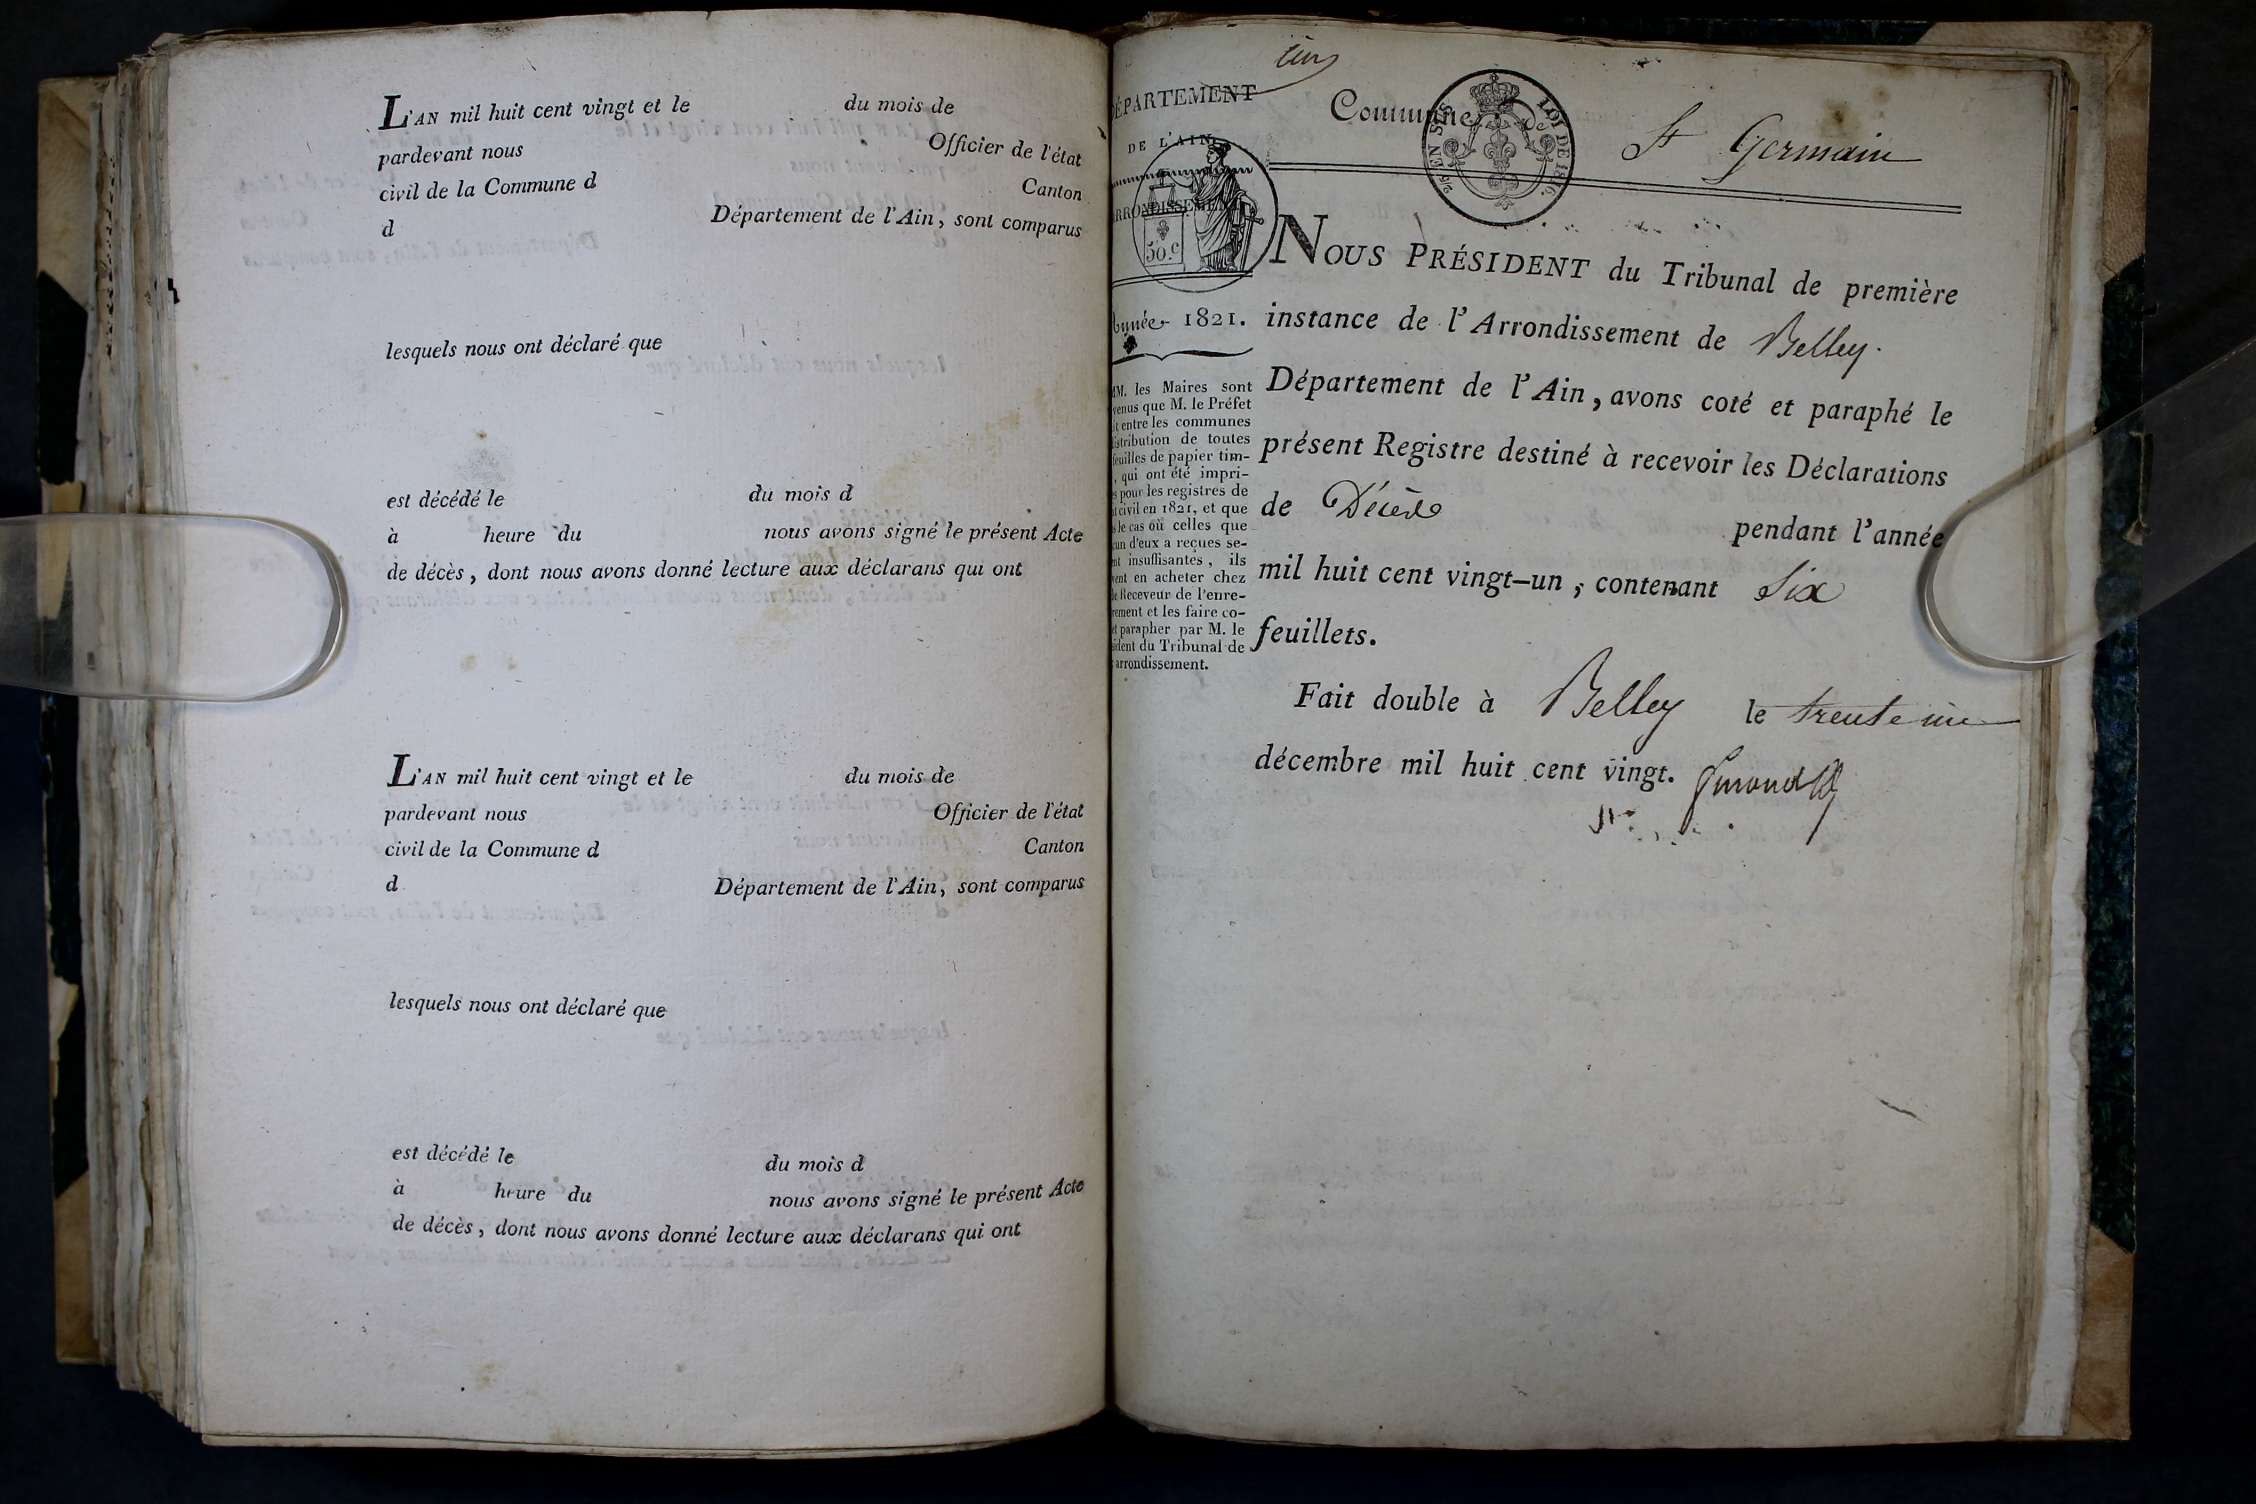 L'AN mil huit cent vingt et le du mois de
pardevant nous Officier de l'état
civil de la Commune d Canton
d Département de l'Ain, sont comparus
lesquels nous ont déclaré que
est décédé le du mois d
à heure du nous avons signé le présent Acte
de décès, dont nous avons donné lecture aux déclarans qui ont
L'AN mil huit cent vingt et le du mois de
pardevant nous Officier de l'état
civil de la Commune d Canton
d Département de l'Ain, sont comparus
lesquels nous ont déclaré que
est décédé le du mois d
à heure du nous avons signé le présent Acte
de décès, dont nous avons donné lecture aux déclarans qui ont
un
DÉPARTEMENT
DE L'AIN
ARRONDISSEMENT
50.c
Année 1821.
MM. les Maires sont
venus que M. le Préfet
it entre les communes
istribution de toutes
feuilles de papier tim-
, qui ont été impri-
s pour les registres de
t civil en 1821, et que
s le cas où celles que
cun d'eux a reçues se-
nt insuffisantes, ils
vent en acheter chez
le Receveur de l'enre-
rement et les faire co-
et parapher par M. le
sident du Tribunal de
arrondissement.
Commune de St Germain
25 EN SUS LOI DE 1816.
NOUS PRÉSIDENT du Tribunal de première
instance de l'Arrondissement de Belley.
Département de l'Ain, avons coté et paraphé le
présent Registre destiné à recevoir les Déclarations
de Décès pendant l'année
mil huit cent vingt-un, contenant Six
feuillets.
Fait double à Belley le trente un
décembre mil huit cent vingt.